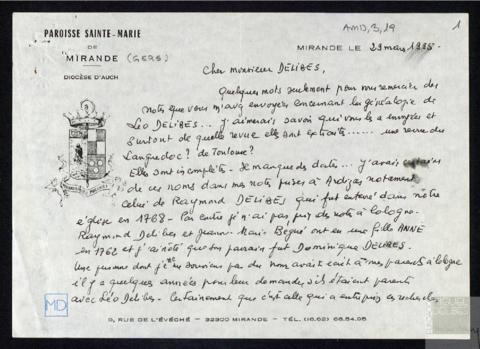 AMD, 3, 19
1
PAROISSE SAINTE-MARIE
DE
MIRANDE (GERS)
DIOCÈSE D'AUCH
MIRANDE LE 29 mars 1985
Cher monsieur DELIBES,
Quelques mots seulement pour vous remercier des
notes que vous m'avez envoyées concernant la généalogie de
Léo DELIBES... j'aimerais savoir qui vous les a envoyées et
surtout de quelle revue elles sont extraites...... une revue du
Languedoc? de Toulouse?
Elles sont incomplètes. Il manque des dates... j'avais certains
de ces noms dans mes notes prises à Ardizas notamment
celui de Raymond DELIBES qui fut enterré dans notre
église en 1768 - Par contre je n'ai pas pris des notes à Cologne.
Raymond Delibes et Jeanne-Marie Begué ont eu une fille ANNE
en 1762 et j'ai noté que son parrain fut Dominique DELIBES.
Une personne dont je ne me souviens pas du nom avait écrit à mes parents à Cologne
il y a quelques années pour leur demander s'ils étaient parents
avec Léo Delibes. Certainement que c'est celle qui a entrepris ces recherches
MD
9, RUE DE L'ÉVÊCHÉ - 32300 MIRANDE - TÉL. (16.62) 66.54.05